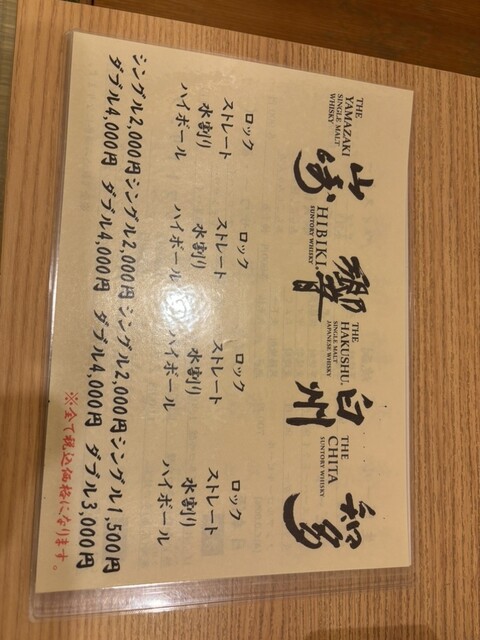 THE
YAMAZAKI
SINGLE MALT
WHISKY
山崎
HIBIKI
SUNTORY WHISKY
響
THE
HAKUSHU
SINGLE MALT
JAPANESE WHISKY
白州
THE
CHITA
SUNTORY WHISKY
知多
ロック
ストレート
水割り
ハイボール
ロック
ストレート
水割り
ハイボール
ロック
ストレート
水割り
ハイボール
ロック
ストレート
水割り
ハイボール
シングル2,000円 シングル2,000円 シングル2,000円 シングル1,500円
ダブル4,000円 ダブル4,000円 ダブル4,000円 ダブル3,000円
※全て税込価格になります。